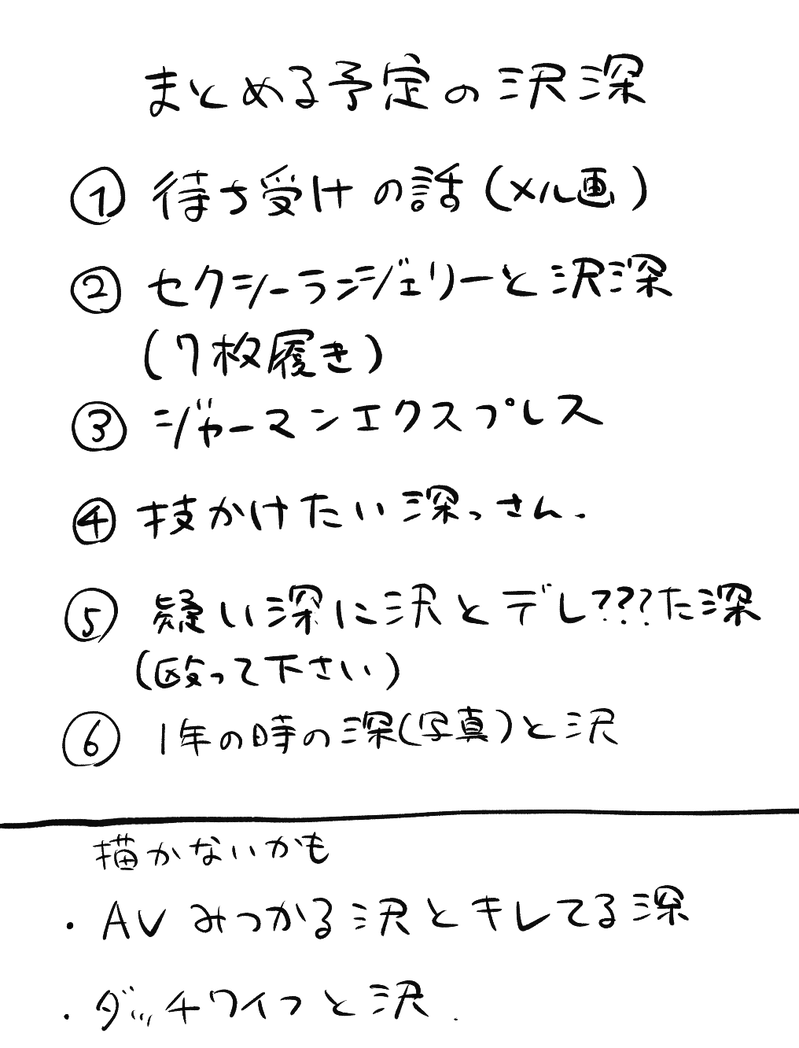 まとめる予定の沢深
① 待ち受けの話(メル画)
② セクシーランジェリーと沢深
(7枚履き)
③ ジャーマンエクスプレス
④ 技かけたい深っさん.
⑤ 疑い深に沢とデレ???た深
(殴って下さい)
⑥ 1年の時の深(写真)と沢
描かないかも
・AVみつかる沢とキレてる深
・ダッチワイフと沢.